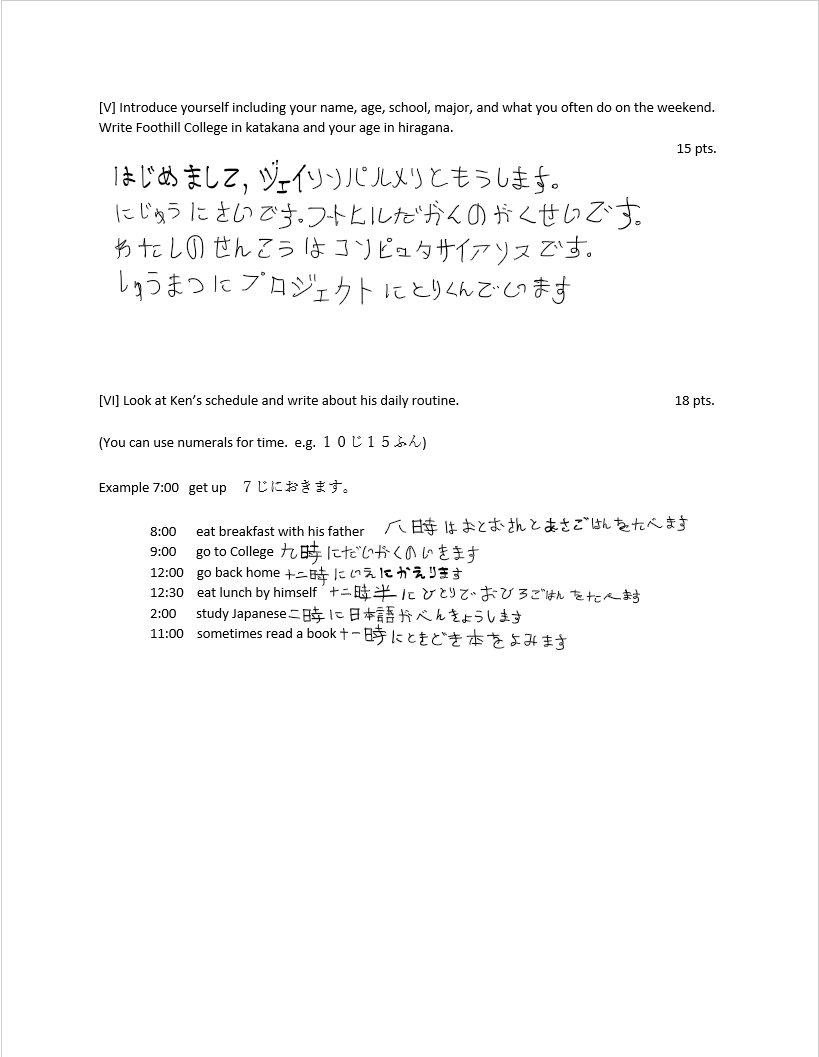 [V] Introduce yourself including your name, age, school, major, and what you often do on the weekend.
Write Foothill College in katakana and your age in hiragana.
15 pts.
はじめまして,ジェイソンパルメリともうします。
にじゅうにさいです。フートヒルだがくのがくせいです。
わたしのせんこうはコンピュタサイアンスです。
しゅうまつにプロジェクトにとりくんでいます
[VI] Look at Ken's schedule and write about his daily routine. 18 pts.
(You can use numerals for time. e.g. １０じ１５ふん)
Example 7:00 get up ７じにおきます。
8:00 eat breakfast with his father 八時はおとおさんとあさごはんをたべます
9:00 go to College 九時にだいがくのいきます
12:00 go back home 十二時にいえにかえります
12:30 eat lunch by himself 十二時半にひとりでおひろごはんをたべます
2:00 study Japanese 二時に日本語がべんきょうします
11:00 sometimes read a book 十一時にときどき本をよみます